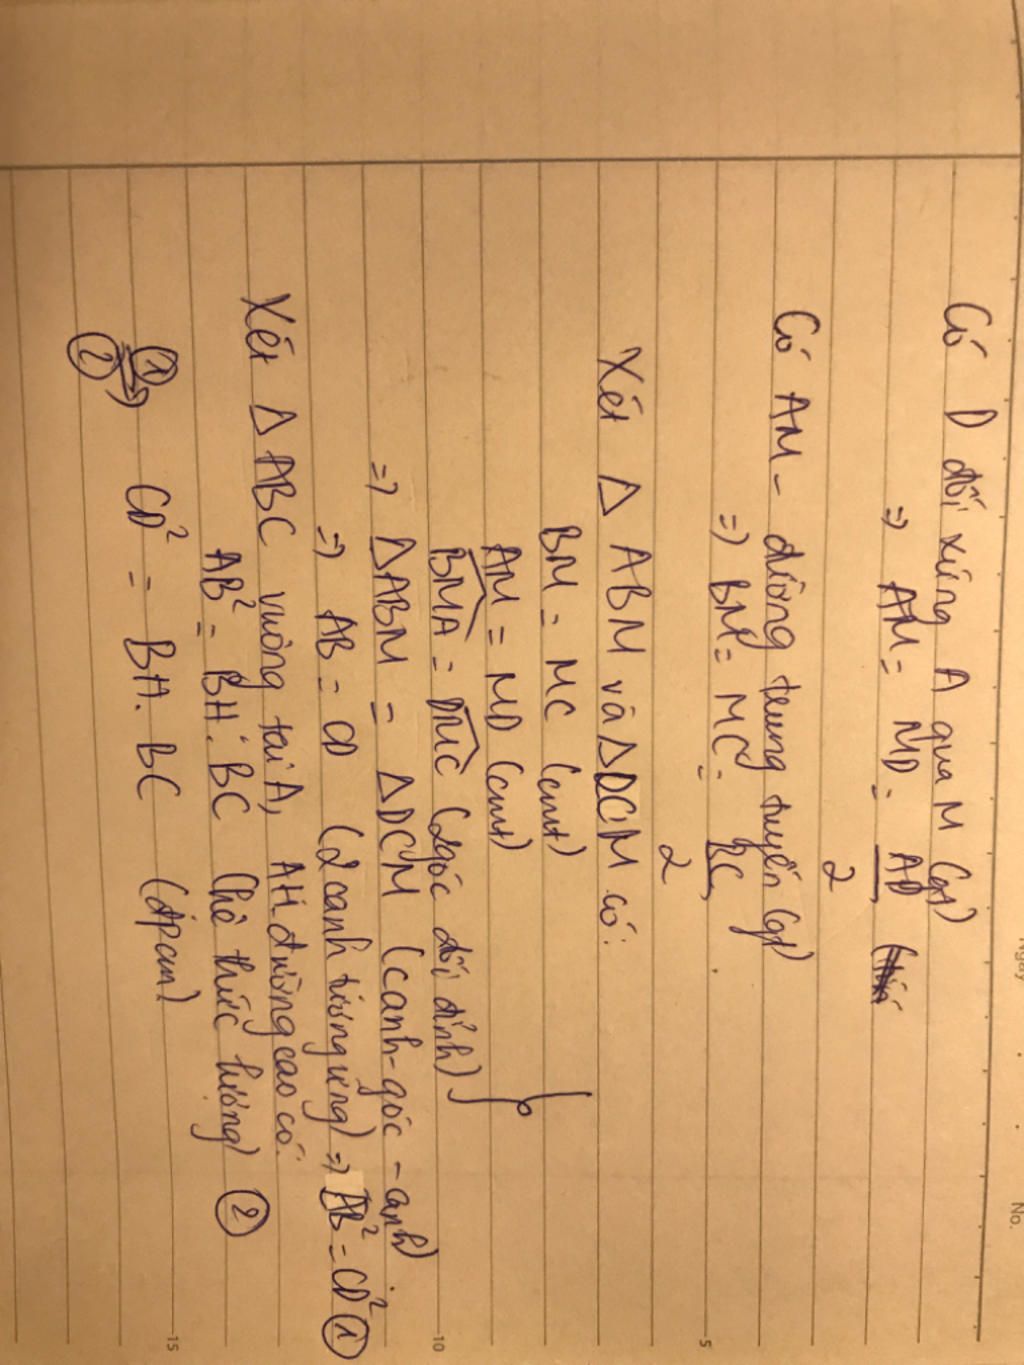 Ngày
No.
Có D đối xứng A qua M (gt)
=> AM = MD = AD/2
Có AM - đường trung tuyến (gt)
=> BM = MC = BC/2
Xét Δ ABM và Δ DCM có:
BM = MC (cmt)
AM = MD (cmt)
BMA = DMC (2 góc đối đỉnh)
=> Δ ABM = Δ DCM (cạnh - góc - cạnh)
=> AB = CD (2 cạnh tương ứng) => AB² = CD² ①
Xét Δ ABC vuông tại A, AH đường cao có:
AB² = BH . BC (hệ thức lượng) ②
① ② => CD² = BH . BC (đpcm)
5
10
15